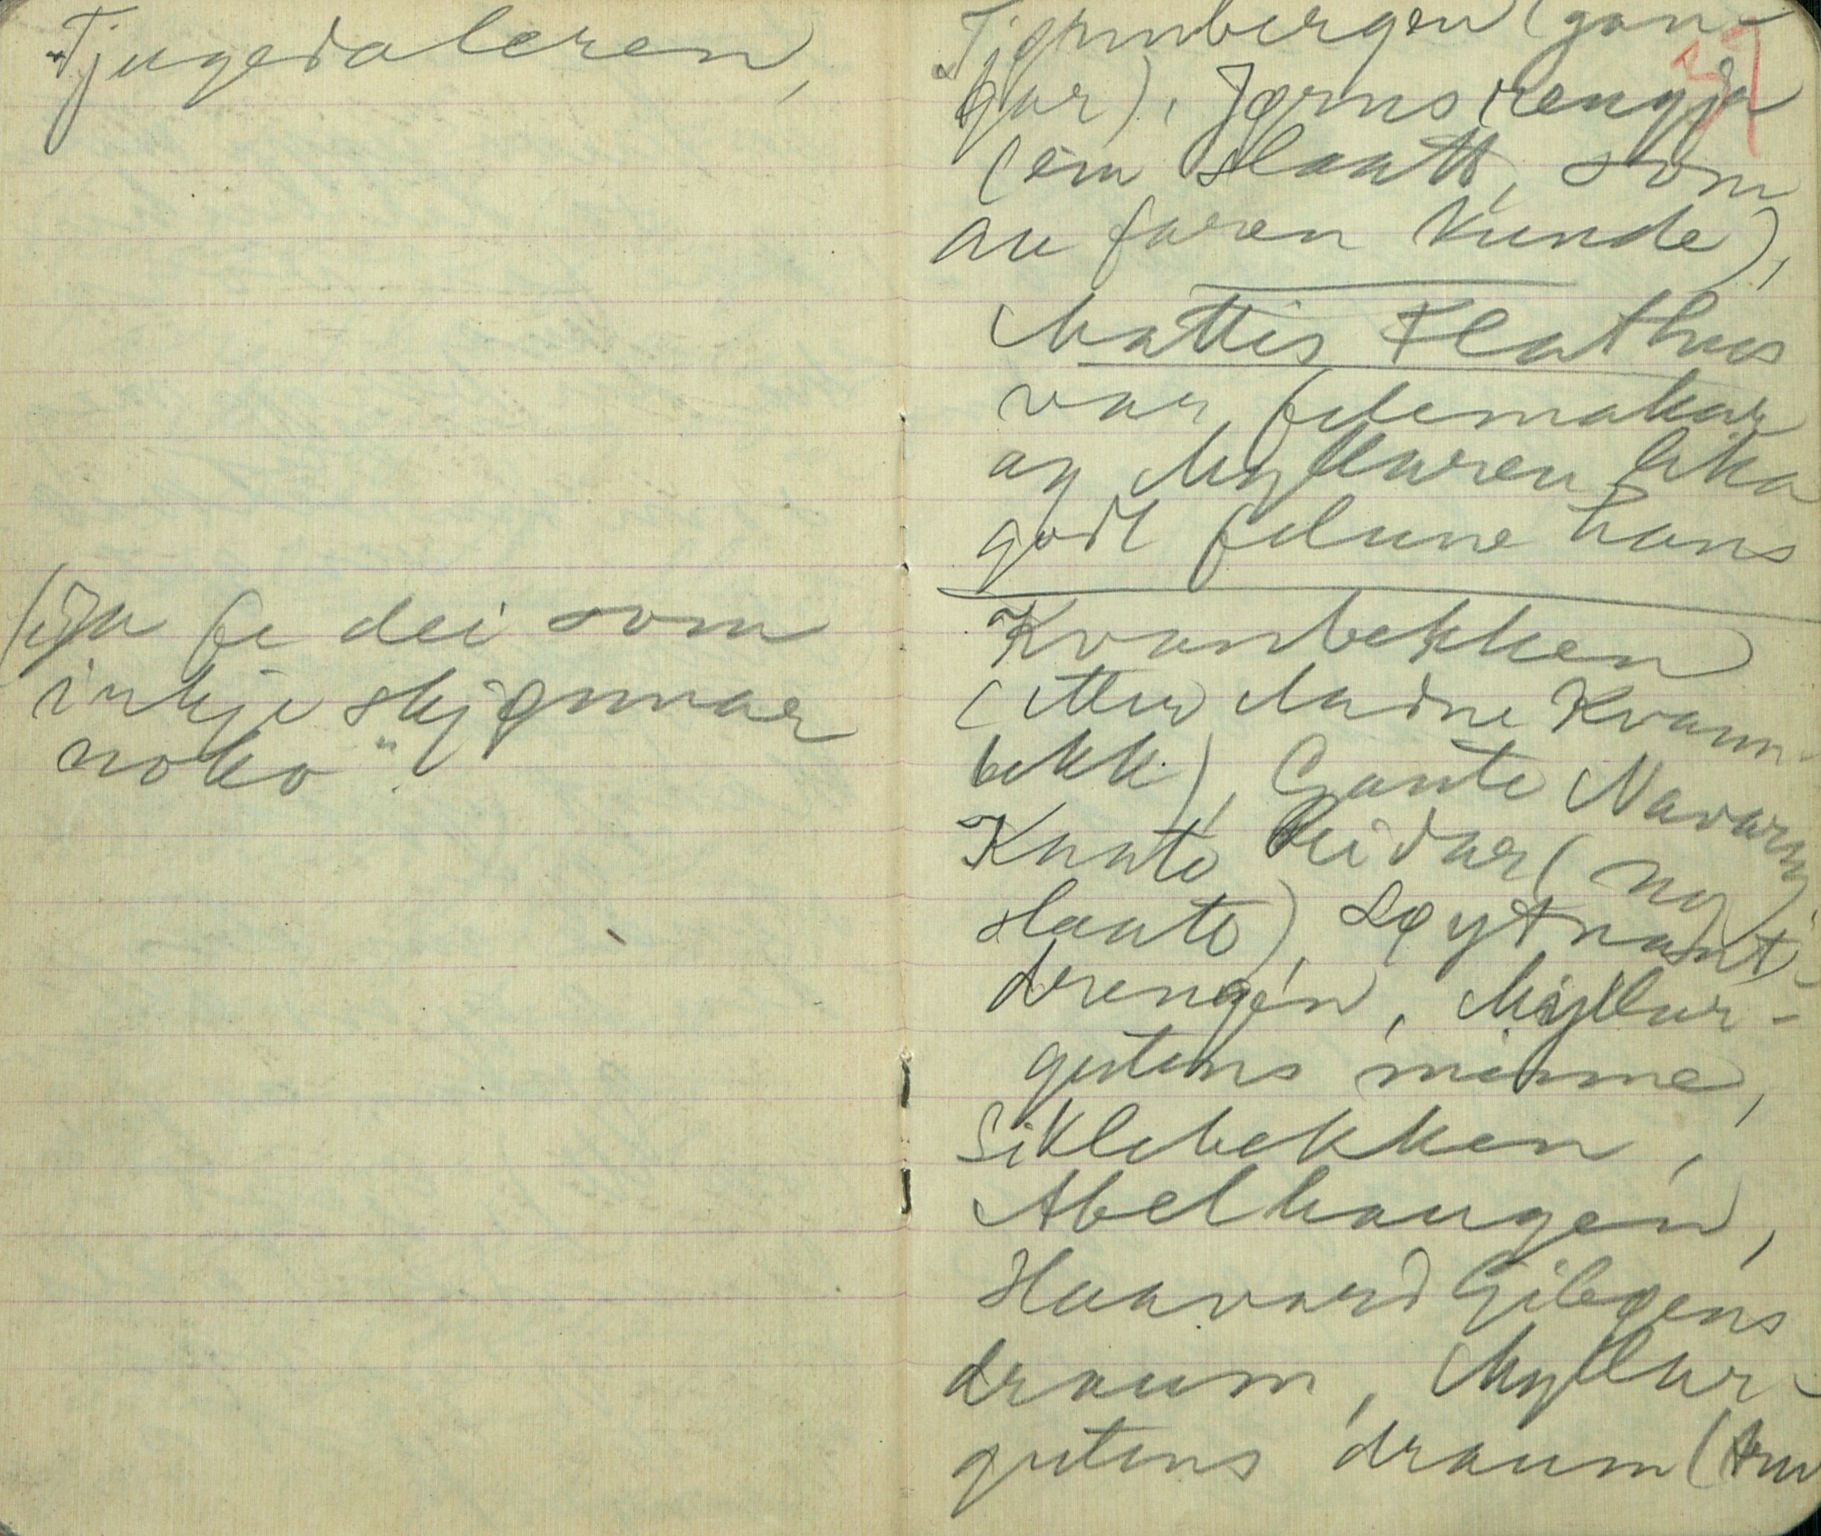 Tjugedaleren,
(ija fe dei som
inkje skjønnar
noko".
Tjønnbergen (gan-
gar), Jørnstrengja
(ein slaatt, som
au faren kunde),
Mattis Flathus
var felemakar
og Myllaren lika
godt felune hans
Kvanbekken
(etter Aadne Kvann-
bekk), Gante Navarm,
Knut Reidar (ny
slaatt), Løytnant-
drengen, Myllar-
gutens minne,
Siklebekken,
Abelhaugen,
Haavard Gibøens
draum, Myllar-
gutens draum (